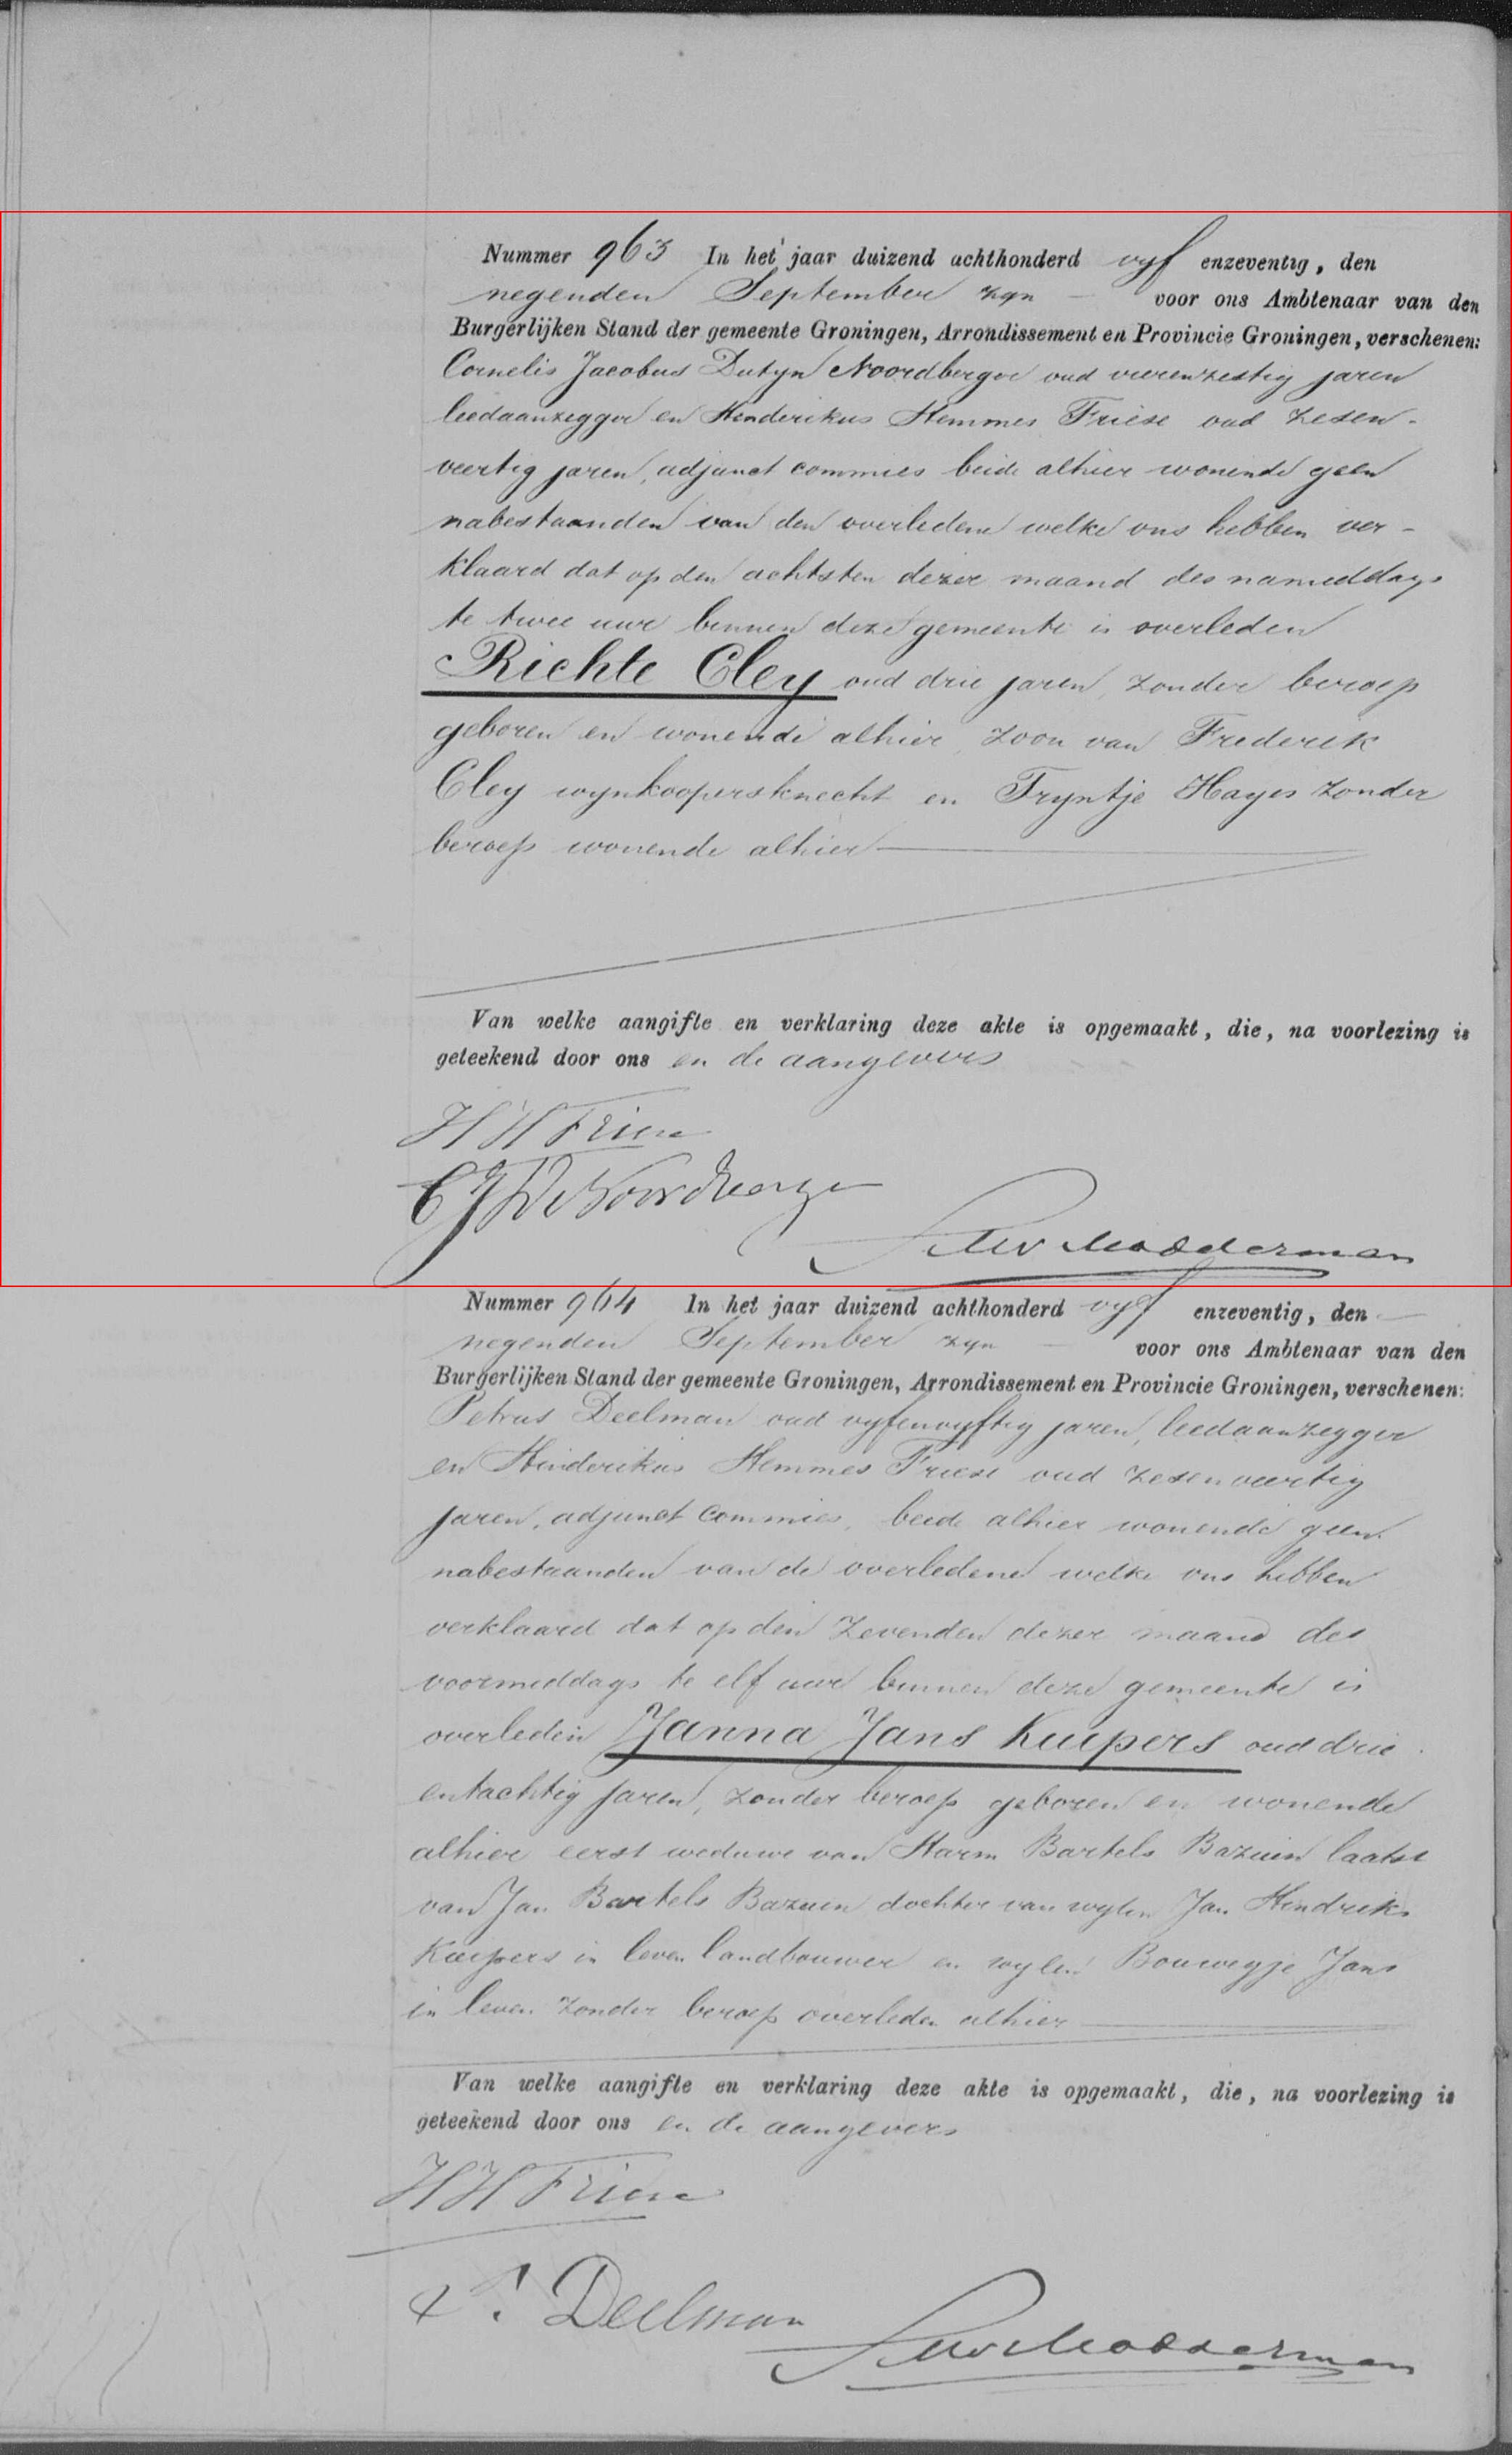 Nummer 963 In het jaar duizend achthonderd vyf enzeventig, den
negenden September zyn voor ons Ambtenaar van den
Burgerlijken Stand der gemeente Groningen, Arrondissement en Provincie Groningen, verschenen:
Cornelis Jacobus Dutyn Noordberger oud vierenzestig jaren
leedaanzegger en Henderikus Hemmes Friese oud zesen-
veertig jaren, adjunct commies beide alhier wonende geen
nabestaanden van den overledene welke ons hebben ver-
klaard dat op den achtsten dezer maand des namiddags
te twee ure binnen deze gemeente is overleden
Richte Cley oud drie jaren, zonder beroep
geboren en wonende alhier, zoon van Frederik
Cley wynkoopersknecht en Tryntje Hayes zonder
beroep wonende alhier
Van welke aangifte en verklaring deze akte is opgemaakt, die, na voorlezing is
geteekend door ons en de aangevers
H H Friese
C J D Noordberger
Modderman
Nummer 964 In het jaar duizend achthonderd vyf enzeventig, den
negenden September zyn voor ons Ambtenaar van den
Burgerlijken Stand der gemeente Groningen, Arrondissement en Provincie Groningen, verschenen:
Petrus Deelman oud vyfenvyftig jaren, leedaanzegger
en Henderikus Hemmes Friese oud zesenveertig
jaren, adjunct commies, beide alhier wonende geen
nabestaanden van de overledene welke ons hebben
verklaard dat op den zevenden dezer maand des
voormiddags te elf ure binnen deze gemeente is
overleden Janna Jans Kuipers oud drie
entachtig jaren, zonder beroep geboren en wonende
alhier eerst weduwe van Harm Bartels Bazuin laatst
van Jan Bartels Bazuin dochter van wylen Jan Hendriks
Kuipers in leven landbouwer en wylen Bouwegje Jans
in leven zonder beroep overleden alhier
Van welke aangifte en verklaring deze akte is opgemaakt, die, na voorlezing is
geteekend door ons en de aangevers
H H Friese
P. Deelman
Modderman